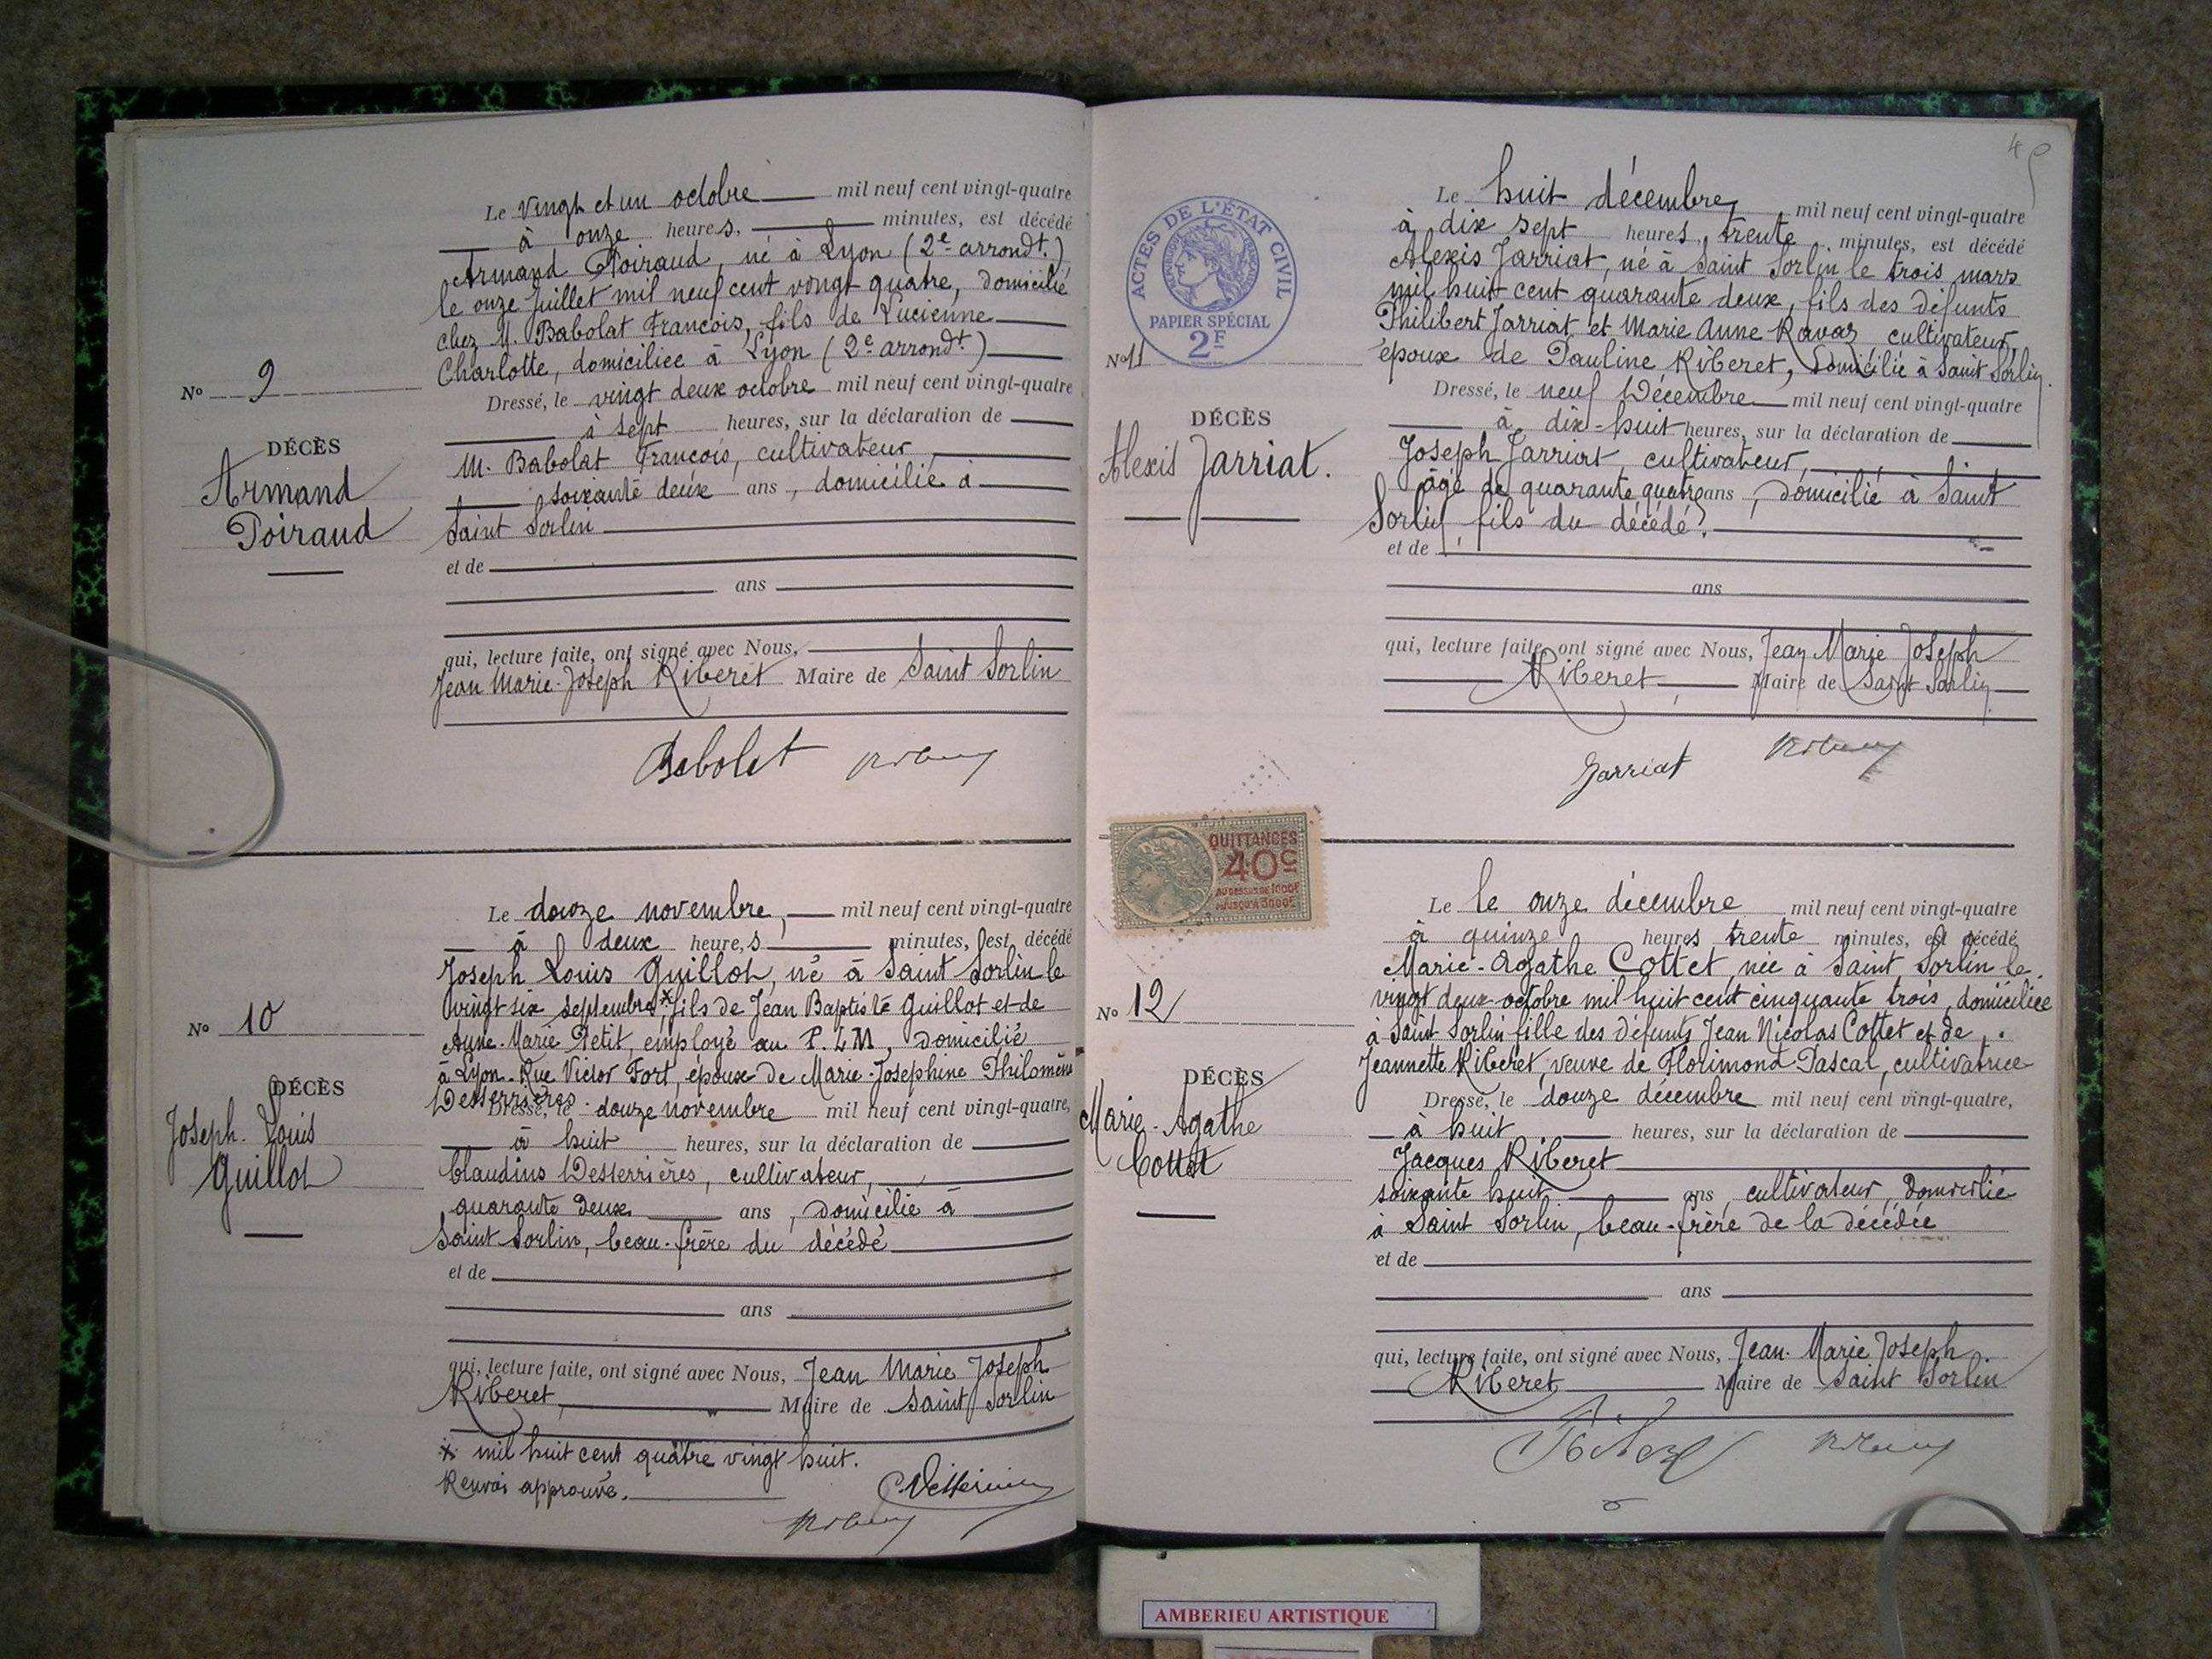 Le vingt et un octobre mil neuf cent vingt-quatre
à onze heures, minutes, est décédé
Armand Poiraud, né à Lyon (2e arrondt.)
le onze Juillet mil neuf cent vingt quatre, domicilié
chez M. Babolat François, fils de Lucienne
Charlotte, domiciliée à Lyon (2e arrondt)
No 9
Dressé, le vingt deux octobre mil neuf cent vingt-quatre
à sept heures, sur la déclaration de
DÉCÈS
Armand
Poiraud
M. Babolat François, cultivateur,
soixante deux ans, domicilié à
Saint Sorlin
et de
ans
qui, lecture faite, ont signé avec Nous,
Jean Marie-Joseph Riberet Maire de Saint Sorlin
Babolat
Le douze novembre, mil neuf cent vingt-quatre
à deux heures minutes, est décédé
Joseph Louis Guillot, né à Saint Sorlin le
vingt six septembre* fils de Jean Baptiste Guillot et de
No 10
Anne-Marie Petit, employé au P.L.M, domicilié
à Lyon-Rue Victor Fort, époux de Marie-Josephine Philomène
Desserrières.
DÉCÈS
Joseph. Louis
Guillot
Dressé, le douze novembre mil neuf cent vingt-quatre,
à huit heures, sur la déclaration de
Claudius Desserrières, cultivateur,
quarante deux ans, domicilié à
Saint Sorlin, beau-frère du décédé
et de
ans
qui, lecture faite, ont signé avec Nous, Jean Marie Joseph
Riberet, Maire de Saint Sorlin
* mil huit cent quatre vingt huit.
Renvoi approuvé.
45
ACTES DE L'ÉTAT CIVIL
PAPIER SPÉCIAL
2F
Le huit décembre, mil neuf cent vingt-quatre
à dix sept heures, trente minutes, est décédé
Alexis Jarriat, né à Saint Sorlin le trois mars
mil huit cent quarante deux, fils des défunts
Philibert Jarriat et Marie Anne Ravaz cultivateur,
époux de Pauline Riberet, Domicilié à Saint Sorlin.
No 11
DÉCÈS
Alexis Jarriat.
Dressé, le neuf Décembre mil neuf cent vingt-quatre
à dix-huit heures, sur la déclaration de
Joseph Jarriat, cultivateur,
âgé de quarante quatre ans, domicilié à Saint
Sorlin, fils du décédé.
et de
ans
qui, lecture faite, ont signé avec Nous, Jean Marie Joseph
Riberet Maire de Saint Sorlin
Jarriat
QUITTANCES
40c
AU DESSUS DE 1000F
JUSQU'À 3000F
Le le onze décembre mil neuf cent vingt-quatre
à quinze heures trente minutes, est décédé
Marie-Agathe Cottet, née à Saint Sorlin le
vingt deux octobre mil huit cent cinquante trois, domiciliée
à Saint Sorlin fille des défunts Jean Nicolas Cottet et de
Jeannette Riberet, veuve de Florimond Pascal, cultivatrice
No 12
DÉCÈS
Marie-Agathe
Cottet
Dressé, le douze décembre mil neuf cent vingt-quatre,
à huit heures, sur la déclaration de
Jacques Riberet
soixante huit ans, cultivateur, domicilié
à Saint Sorlin, beau-frère de la décédée
et de
ans
qui, lecture faite, ont signé avec Nous, Jean-Marie Joseph
Riberet Maire de Saint Sorlin
AMBERIEU ARTISTIQUE